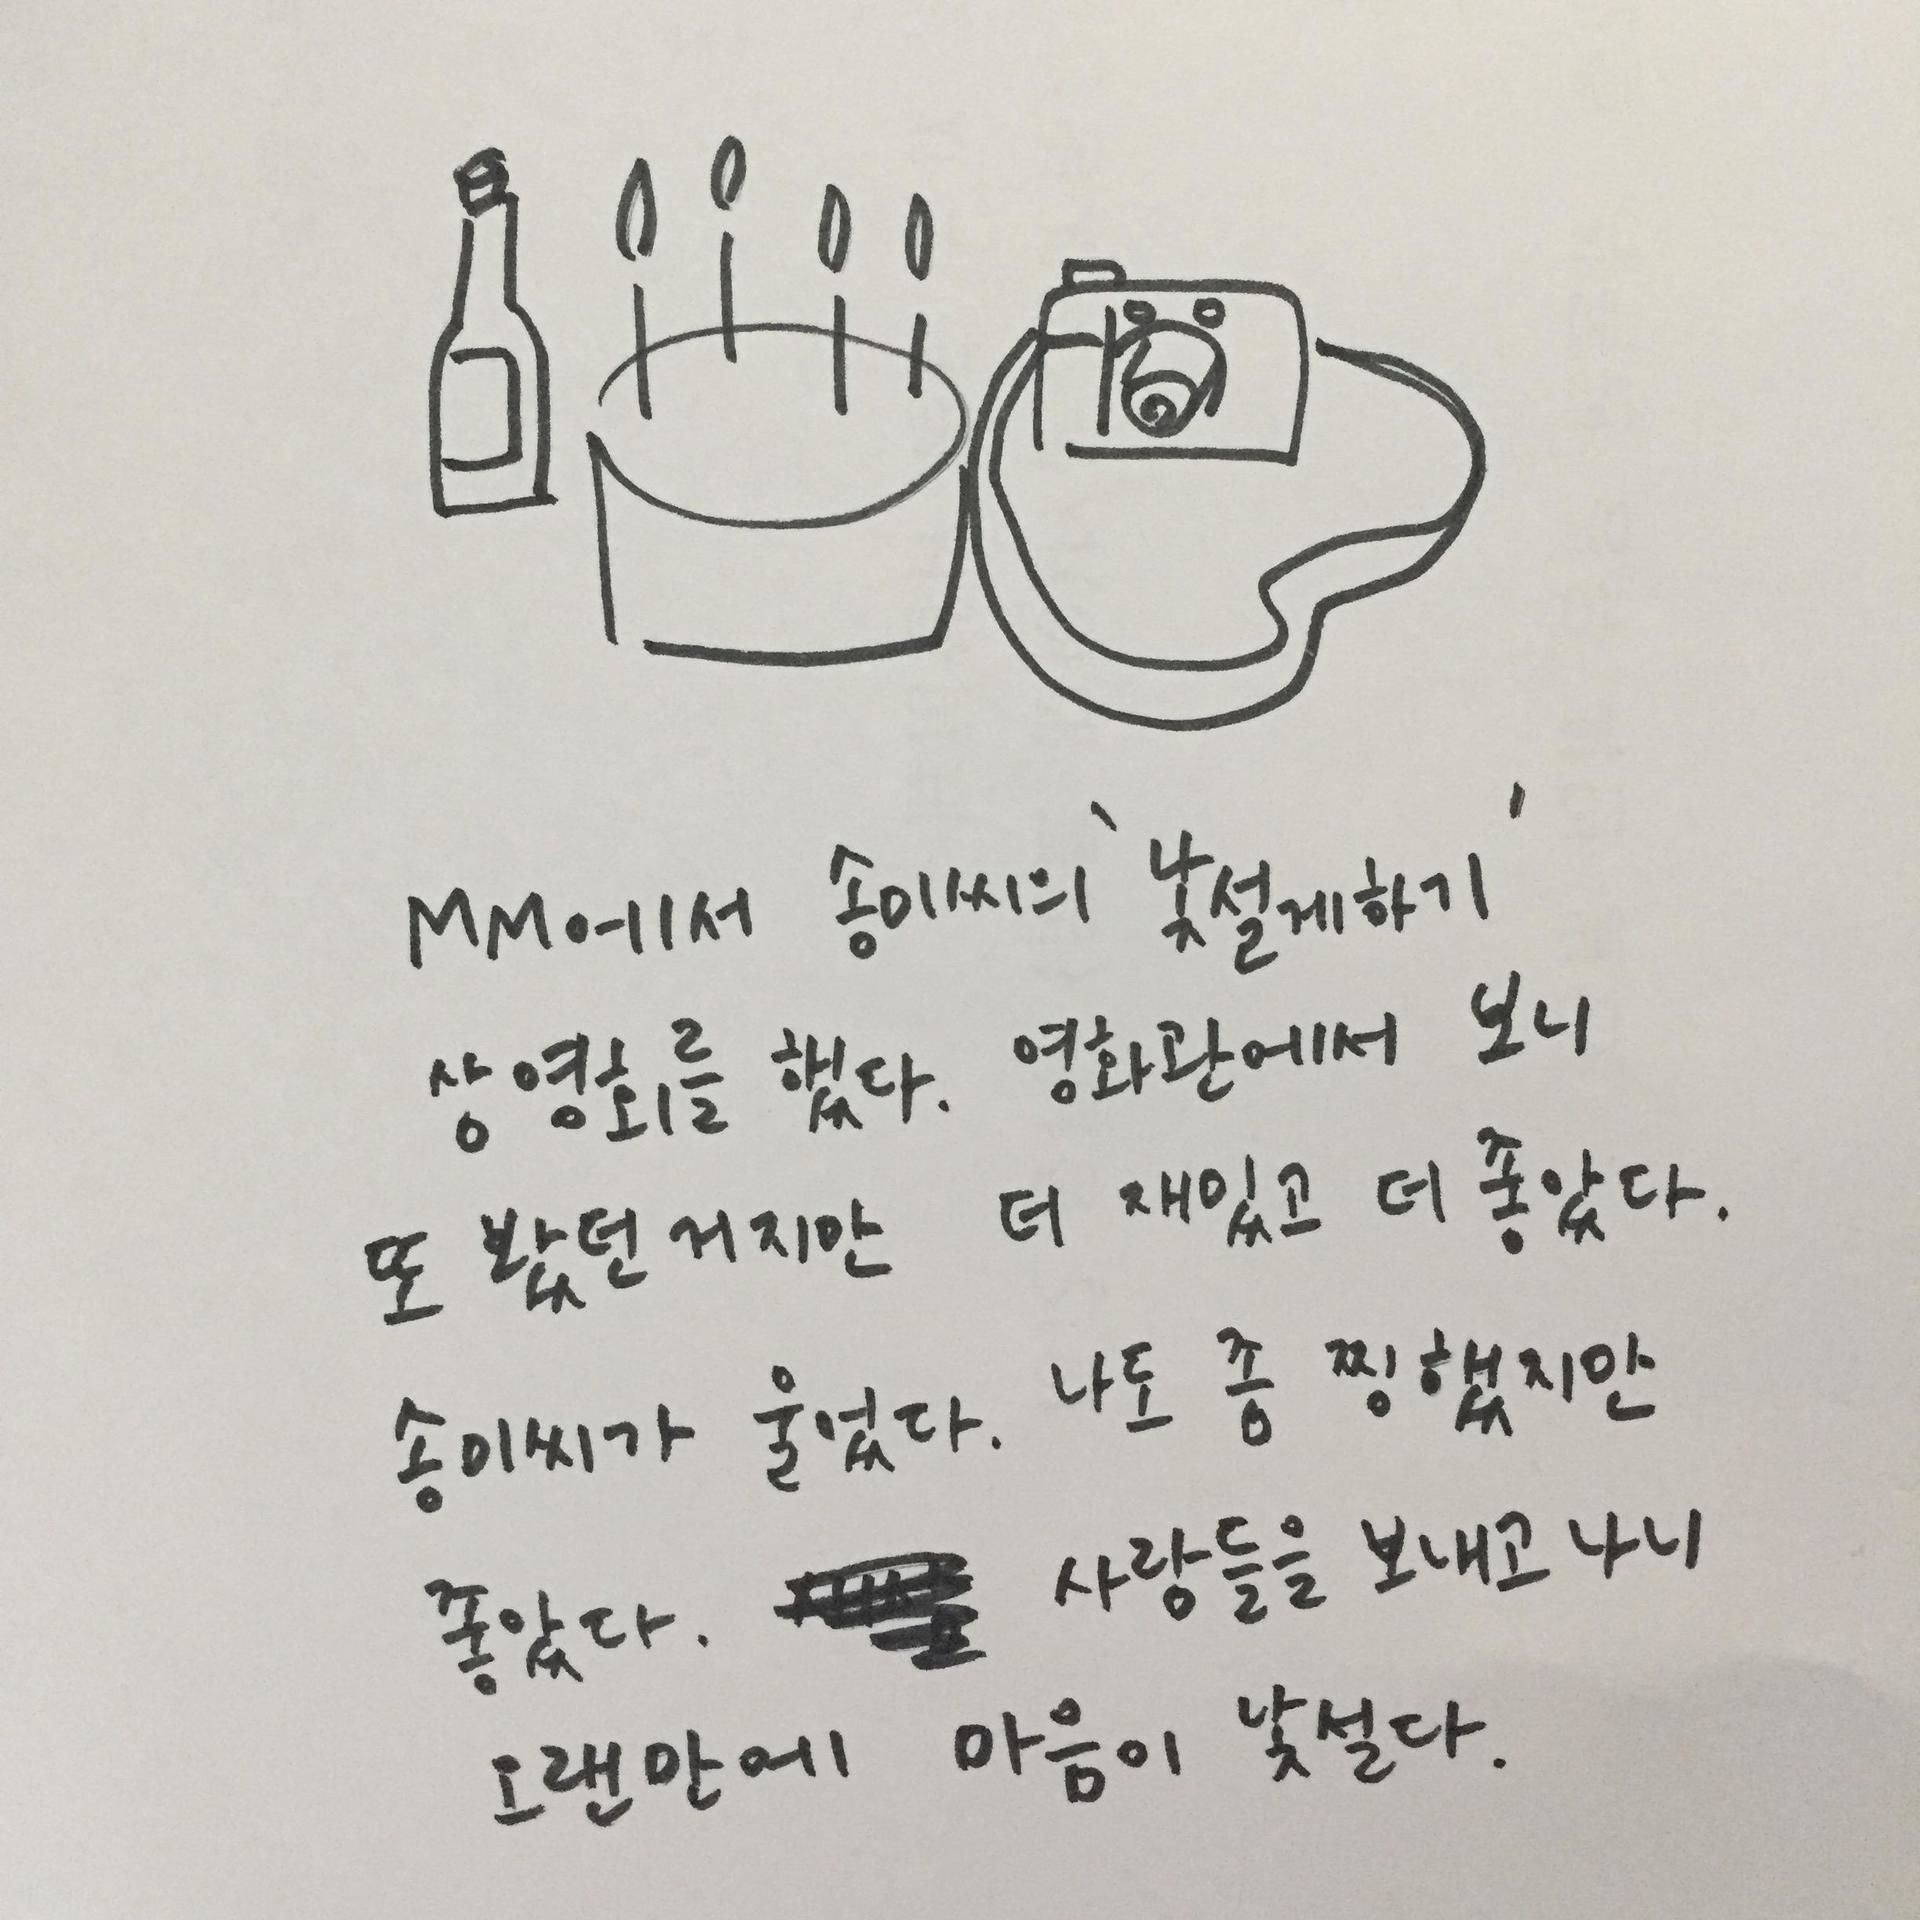 MM에서 송미씨의 '낯설게하기'
상영회를 했다. 영화관에서 보니
또 봤던거지만 더 재밌고 더 좋았다.
송미씨가 울었다. 나도 좀 찡했지만
좋았다. 사랑들을 보내고 나니
오랜만에 마음이 낯설다.